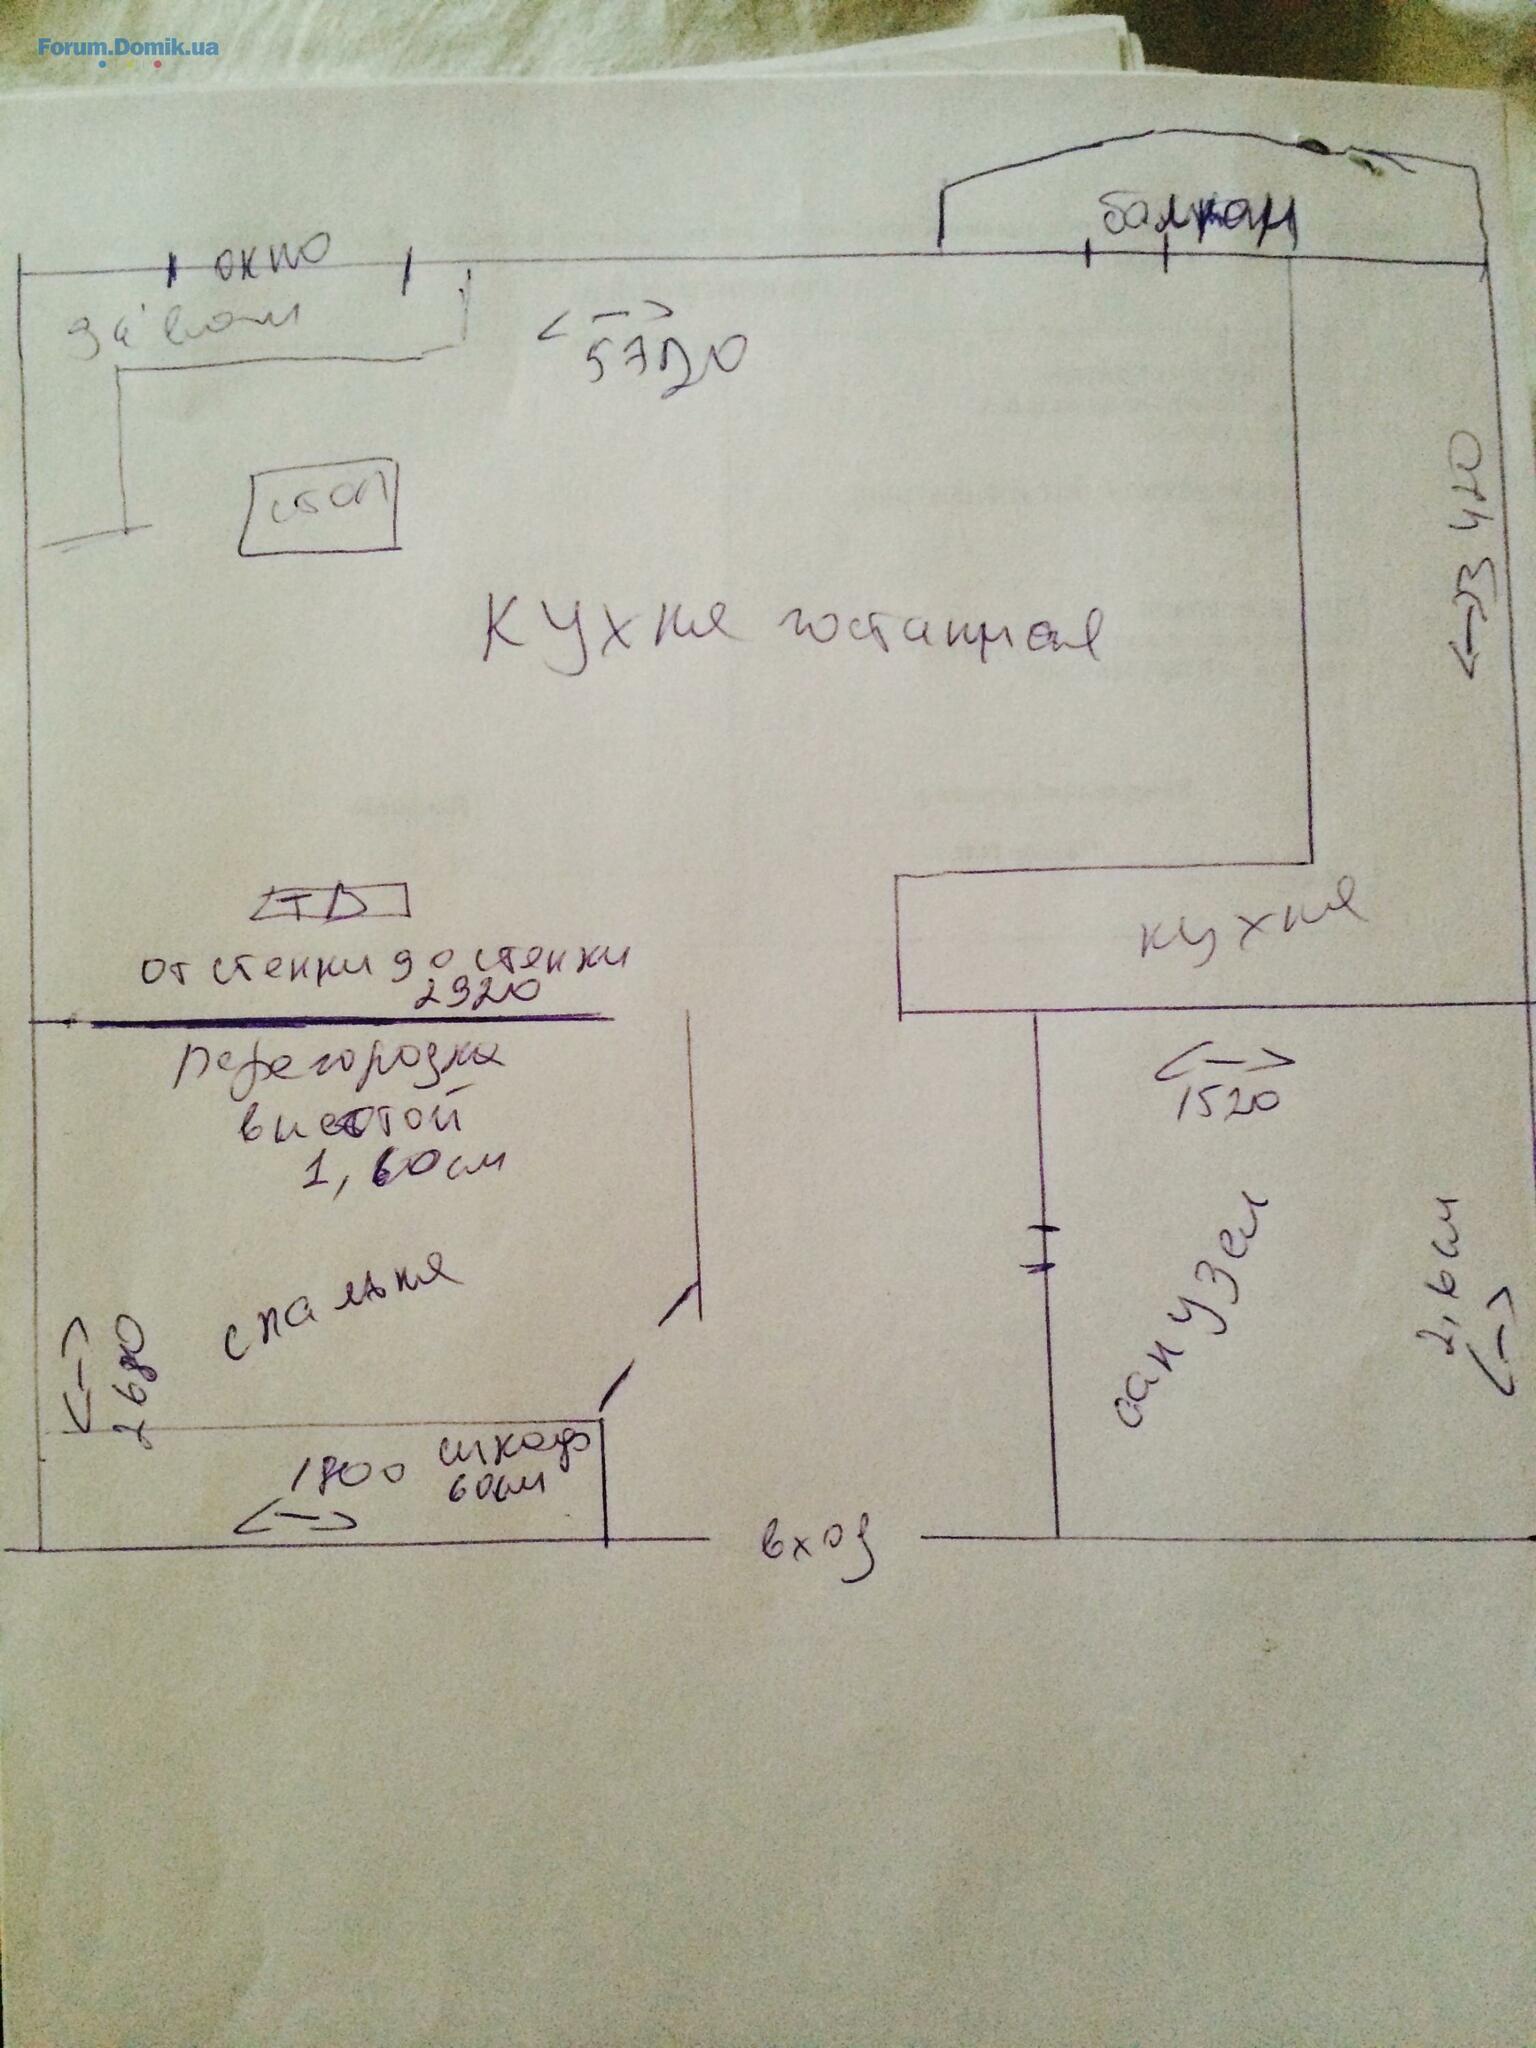 Forum.Domik.ua
балкон
окно
диван
5720
стол
3420
кухня гостинная
ТВ
кухня
от стенки до стенки
2920
перегородка
высотой
1,60см
1520
санузел
2,6см
спальня
2680
шкаф
1800
60см
вход